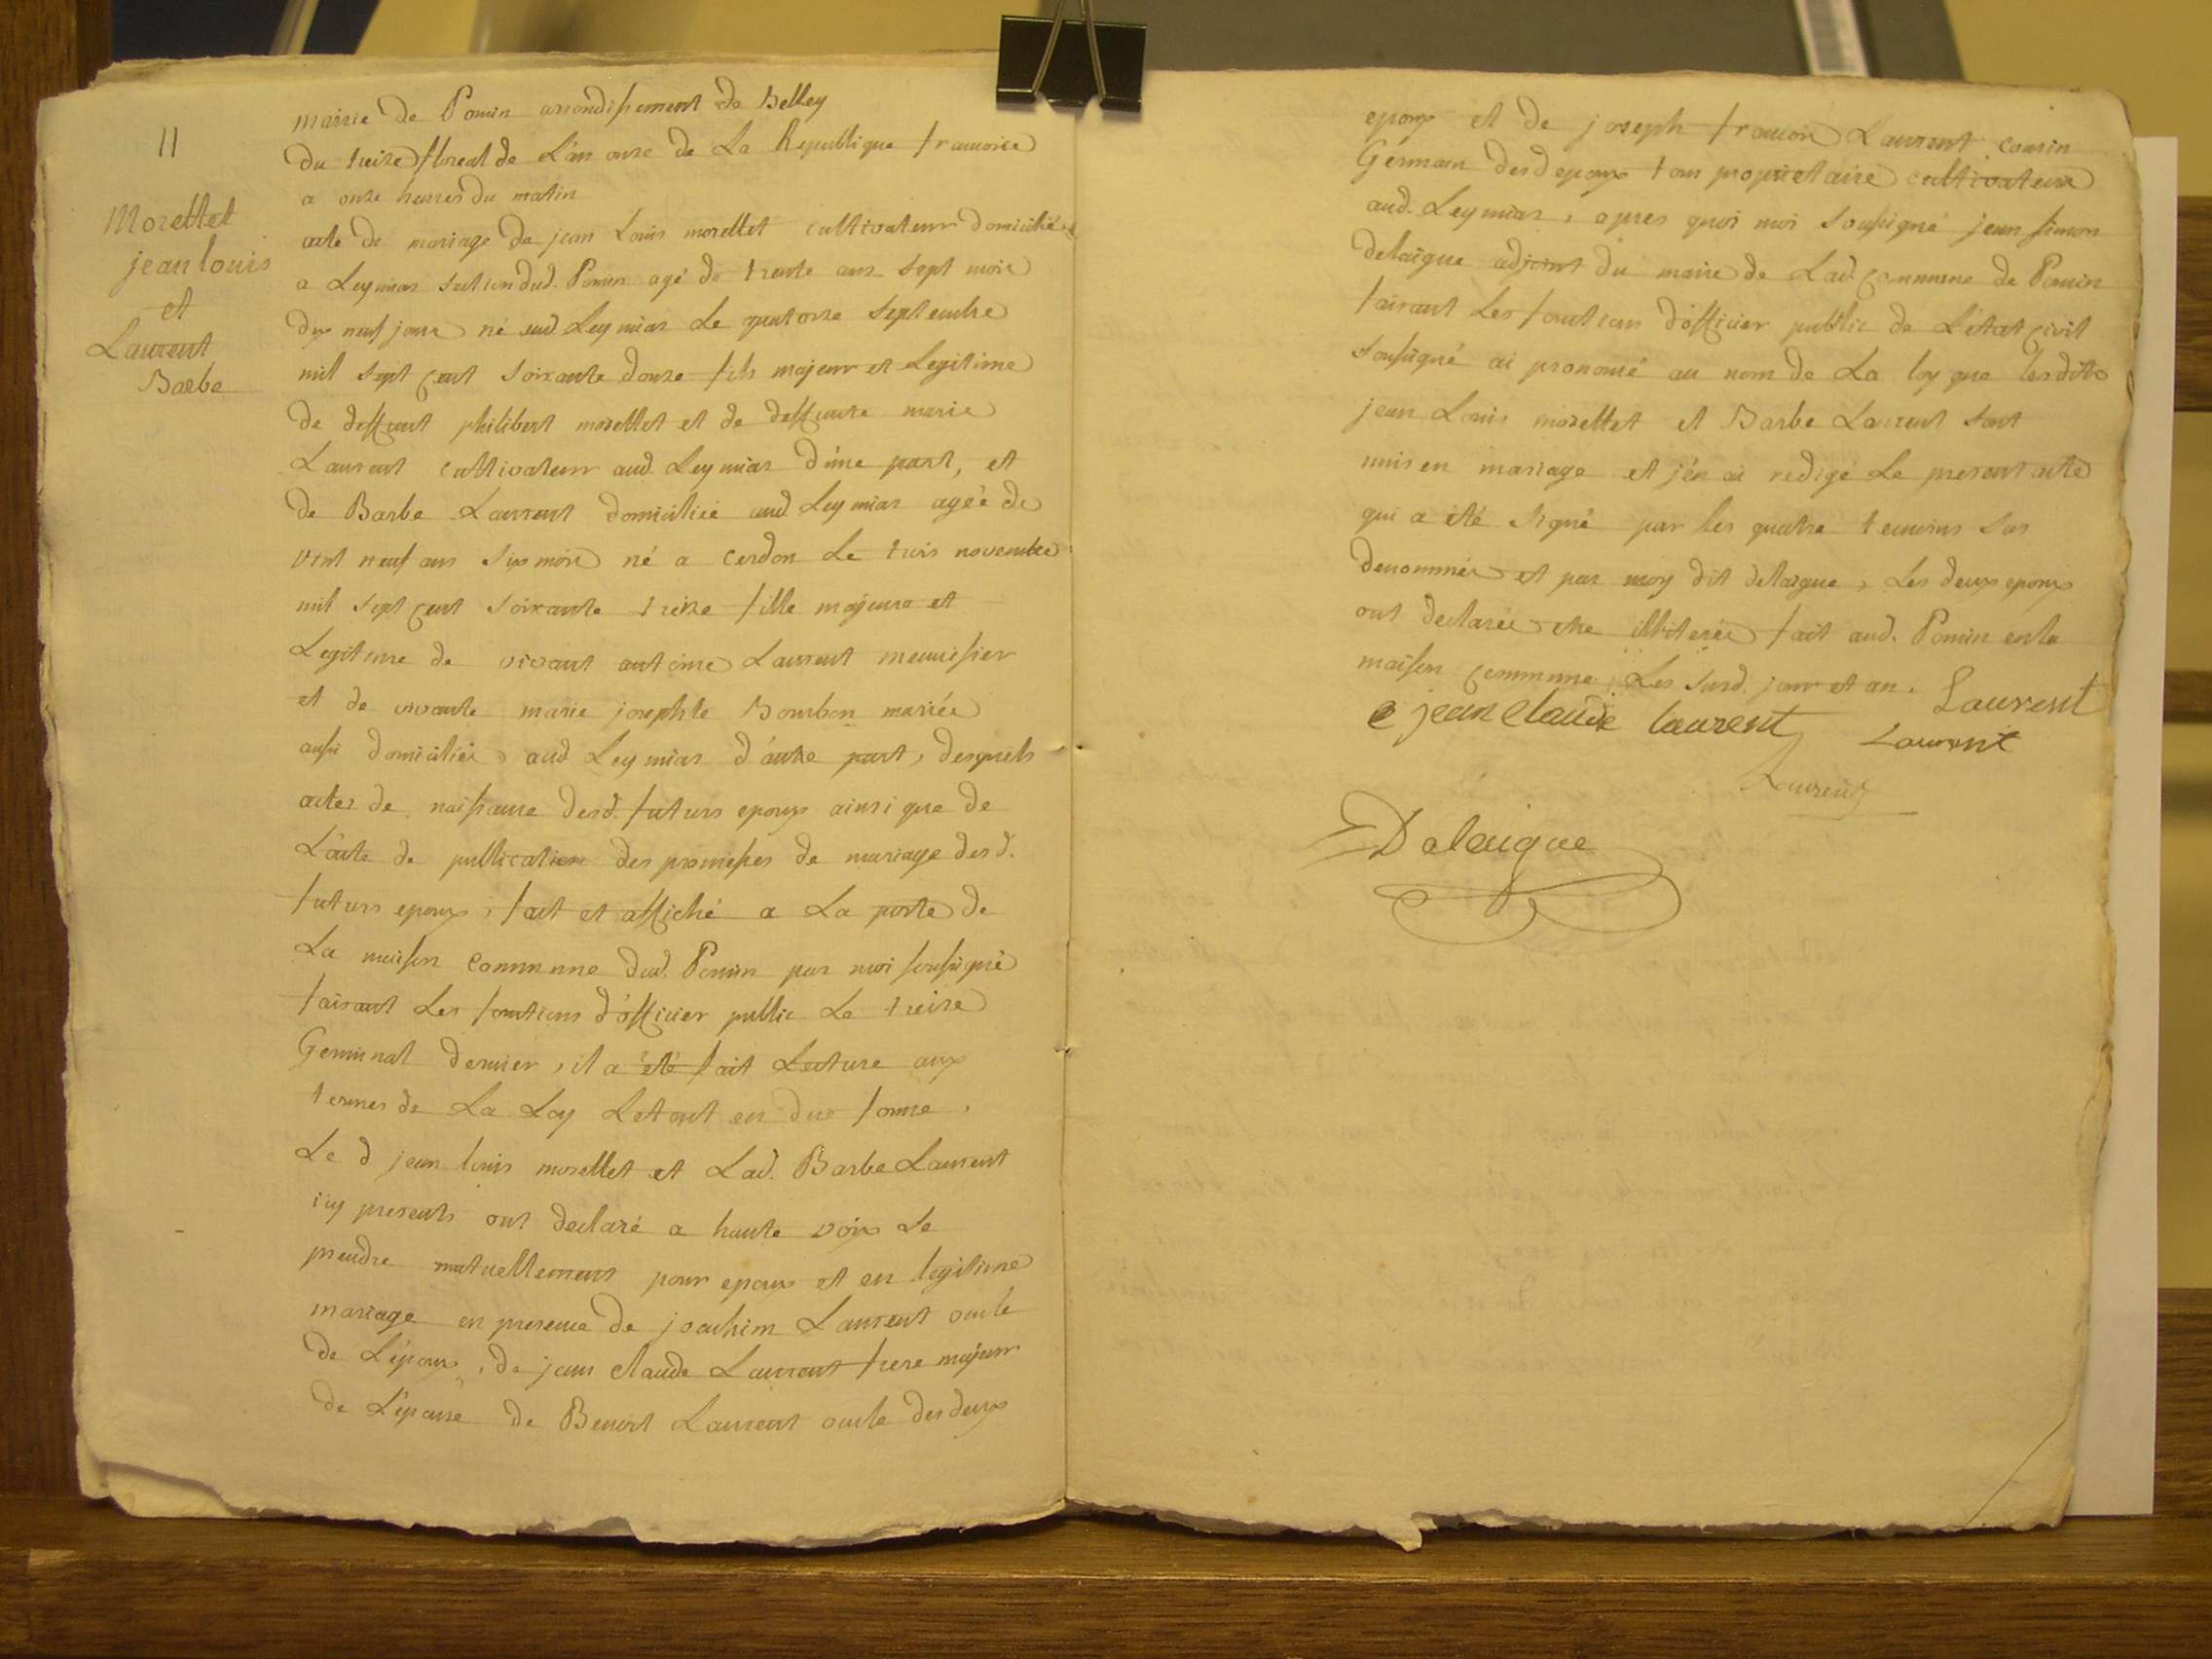 11
Morettet
jean louis
et
Laurent
Barbe
mairie de Poncin arrondissement de Belley
du treize floreal de L'an onze de La Republique francoise
a onze heures du matin
acte de mariage de jean Louis morettet cultivateur domicilié
a Leymiat section dud. Poncin agé de trente ans sept mois
dix neuf jours né aud Leymiat Le quatorze Septembre
mil sept cent soixante douze fils majeur et Legitime
de deffunt philibert morettet et de deffunte marie
Laurent cultivateur aud Leymiat d'une part, et
de Barbe Laurent domiciliée aud Leymiat agée de
vint neuf ans six mois né a cerdon Le trois novembre
mil sept cent soixante treize fille majeure et
Legitime de vivant antoine Laurent menuisier
et de vivante marie josephte Bourbon mariée
aussi domiciliés aud Leymiat d'autre part, desquels
actes de naissance desd. futurs epoux ainsi que de
L'acte de publication des promesses de mariage desd.
futurs epoux, fait et affiché a La porte de
La maison commune dud. Poncin par moi soussigné
faisant Les fonctions d'officier public Le treize
Germinal dernier, il a été fait Lecture aux
termes de La Loy Le tout en due forme,
Le d jean louis morettet et Lad. Barbe Laurent
icy presents ont declaré a haute voix se
prendre mutuellement pour epoux et en legitime
mariage en presence de joachim Laurent oncle
de L'epoux, de jean claude Laurent frere majeur
de L'epouse de Benoit Laurent oncle des deux
epoux et de joseph francois Laurent cousin
Germain desd epoux tous proprietaires cultivateurs
aud. Leymiat, apres quoi moi soussigné jean simon
delaigue adjoint du maire de Lad. commune de Poncin
faisant Les fonctions d'officier public de L'etat civil
soussigné ai prononcé au nom de La loy que lesdits
jean Louis morettet et Barbe Laurent sont
unis en mariage et j'en ai redigé Le present acte
qui a été signé par les quatre temoins sus
denommés et par moy dit delaigue, Les deux epoux
ont declarés etre illiterés fait aud. Poncin en la
maison commune Les susd. jour et an.
Laurent
jean Claude laurent
Laurent
Laurent
Delaigue